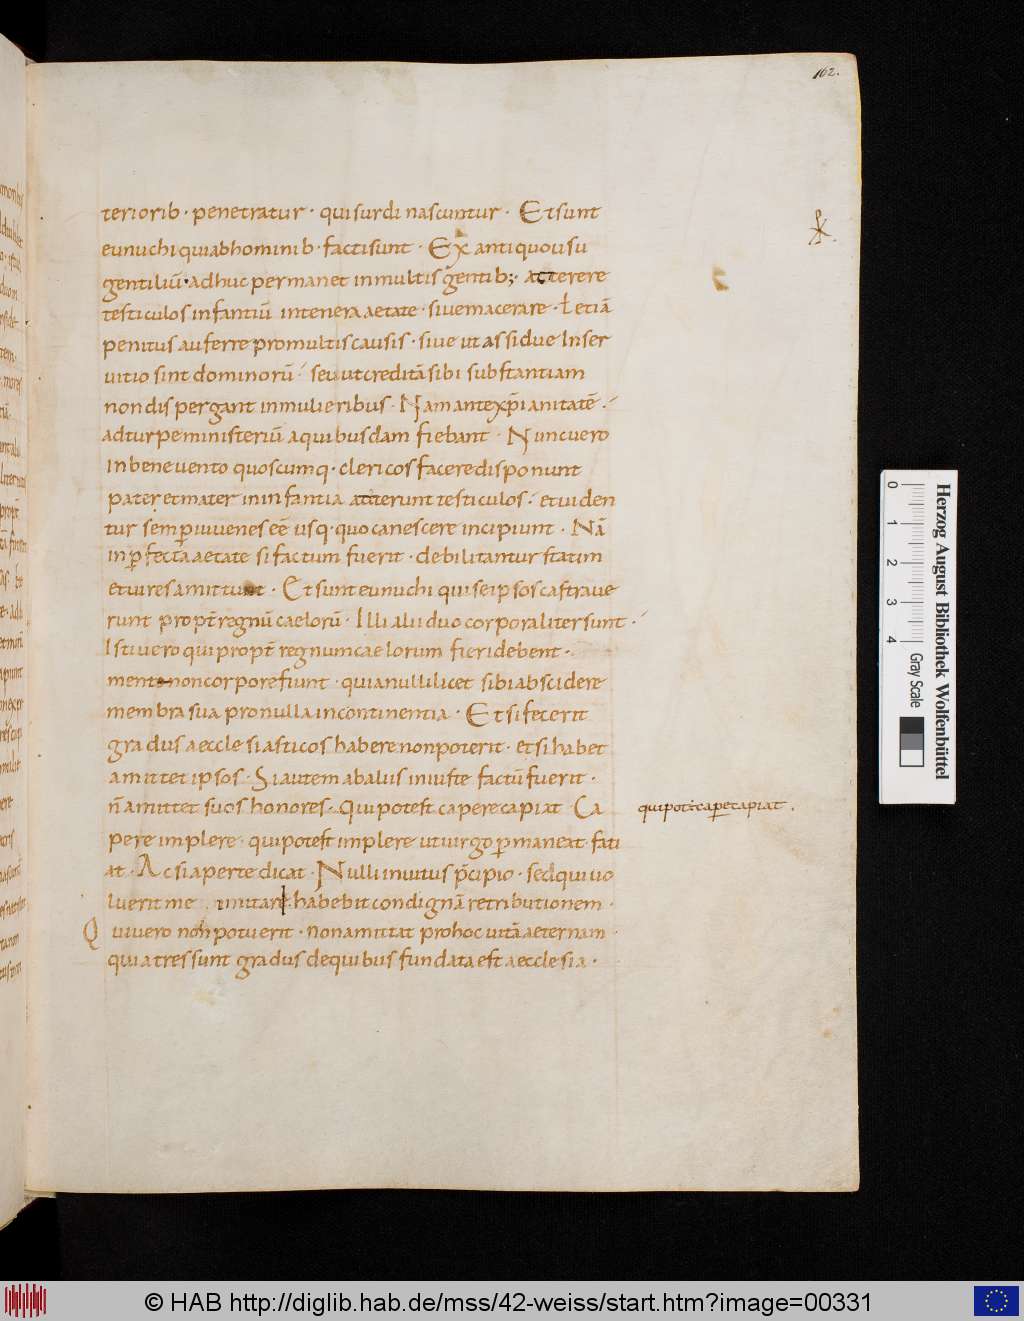 162.
teriorib· penetratur· qui surdi nascuntur· Et sunt
eunuchi qui ab hominib· facti sunt· Ex antiquo usu
gentiliū· adhuc permanet in multis gentib;· atterere
testiculos infantiū in tenera aetate· sive macerare· ł etiā
penitus auferre pro multis causis· sive ut assidue in ser
vitio sint dominorū· seu ut creditā sibi substantiam
non dispergant in mulieribus· Nam ante xp̄ianitatē·
ad turpe ministeriū a quibusdam fiebant· Nunc vero
in benevento quoscumq· clericos facere disponunt
pater et mater in infantia atterunt testiculos· et viden
tur semp iuvenes eēe usq· quo canescere incipiunt· Nā
in pfecta aetate si factum fuerit· debilitantur statim
et vires amittunt· Et sunt eunuchi qui se ipsos castrave
runt propt̄ regnū caelorū· Illi alii duo corporaliter sunt·
Isti vero qui propt̄ regnum caelorum fieri debent·
mente non corpore fiunt· quia nulli licet sibi abscidere
membra sua pro nulla incontinentia· Et si fecerit
gradus aecclesiasticos habere non poterit· et si habet
amittet ipsos· Si autem ab aliis iniuste factū fuerit·
n̄ amittet suos honores· Qui potest capere capiat· Ca
pere implere· qui potest implere ut virgo pmaneat· fati
at· Ac si aperte dicat· Nulli invitus p̄cipio· sed qui vo
luerit me imitare habebit condignā retributionem·
Qui vero non potuerit· non amittat pro hoc vitā aeternam·
quia tres sunt gradus de quibus fundata est aecclesia·
qui pot̄ capere capiat.
0 1 2 3 4
Gray Scale
Herzog August Bibliothek Wolfenbüttel
© HAB http://diglib.hab.de/mss/42-weiss/start.htm?image=00331